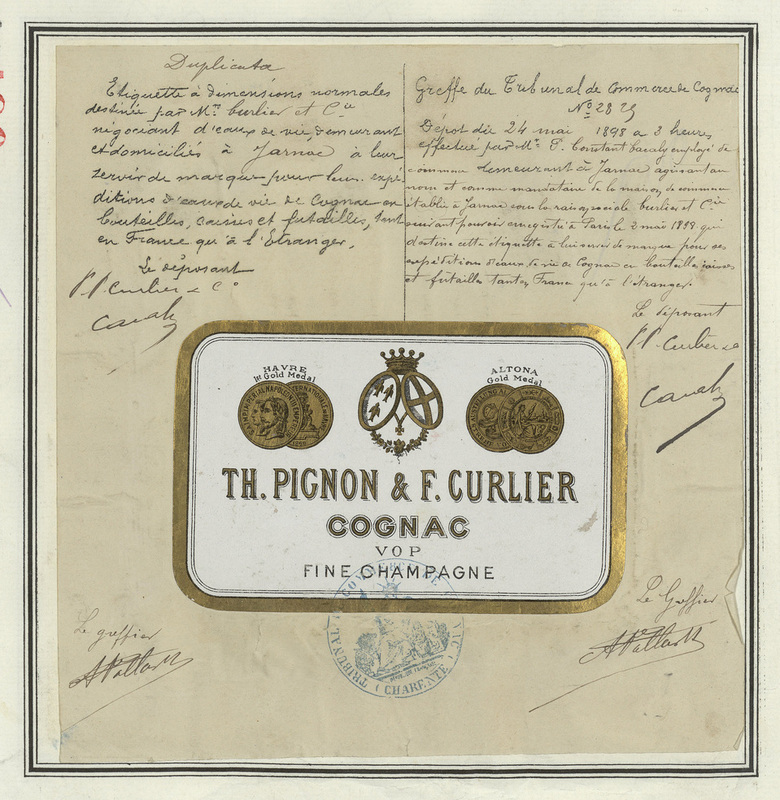 Duplicata
Etiquette à dimensions normales
destinée par Mrs Curlier et Cie
négociant d'eaux de vie, demeurant
et domiciliés à Jarnac à leur
servir de marque pour leurs expé-
ditions d'eaux de vie de Cognac en
bouteilles, caisses et futailles, tant
en France qu'à l'Etranger.
Le déposant
P.P. Curlier & Co
Greffe du Tribunal de Commerce de Cognac
No 2825
Dépôt du 24 mai 1898 à 3 heures
effectué par Mr P. Constant employé de
commerce demeurant à Jarnac agissant au
nom et comme mandataire de la maison de commerce
établie à Jarnac sous la raison sociale Curlier et Cie
suivant pouvoir enregistré à Paris le 2 mai 1898 qui
destine cette étiquette à lui servir de marque pour ses
expéditions d'eaux de vie de Cognac en bouteilles caisses
et futailles tant en France qu'à l'étranger.
Le déposant
P.P. Curlier & Co
HAVRE
1st Gold Medal
ALTONA
Gold Medal
TH. PIGNON & F. CURLIER
COGNAC
VOP
FINE CHAMPAGNE
TRIBUNAL DE COMMERCE DE COGNAC
(CHARENTE)
Le greffier
Le Greffier